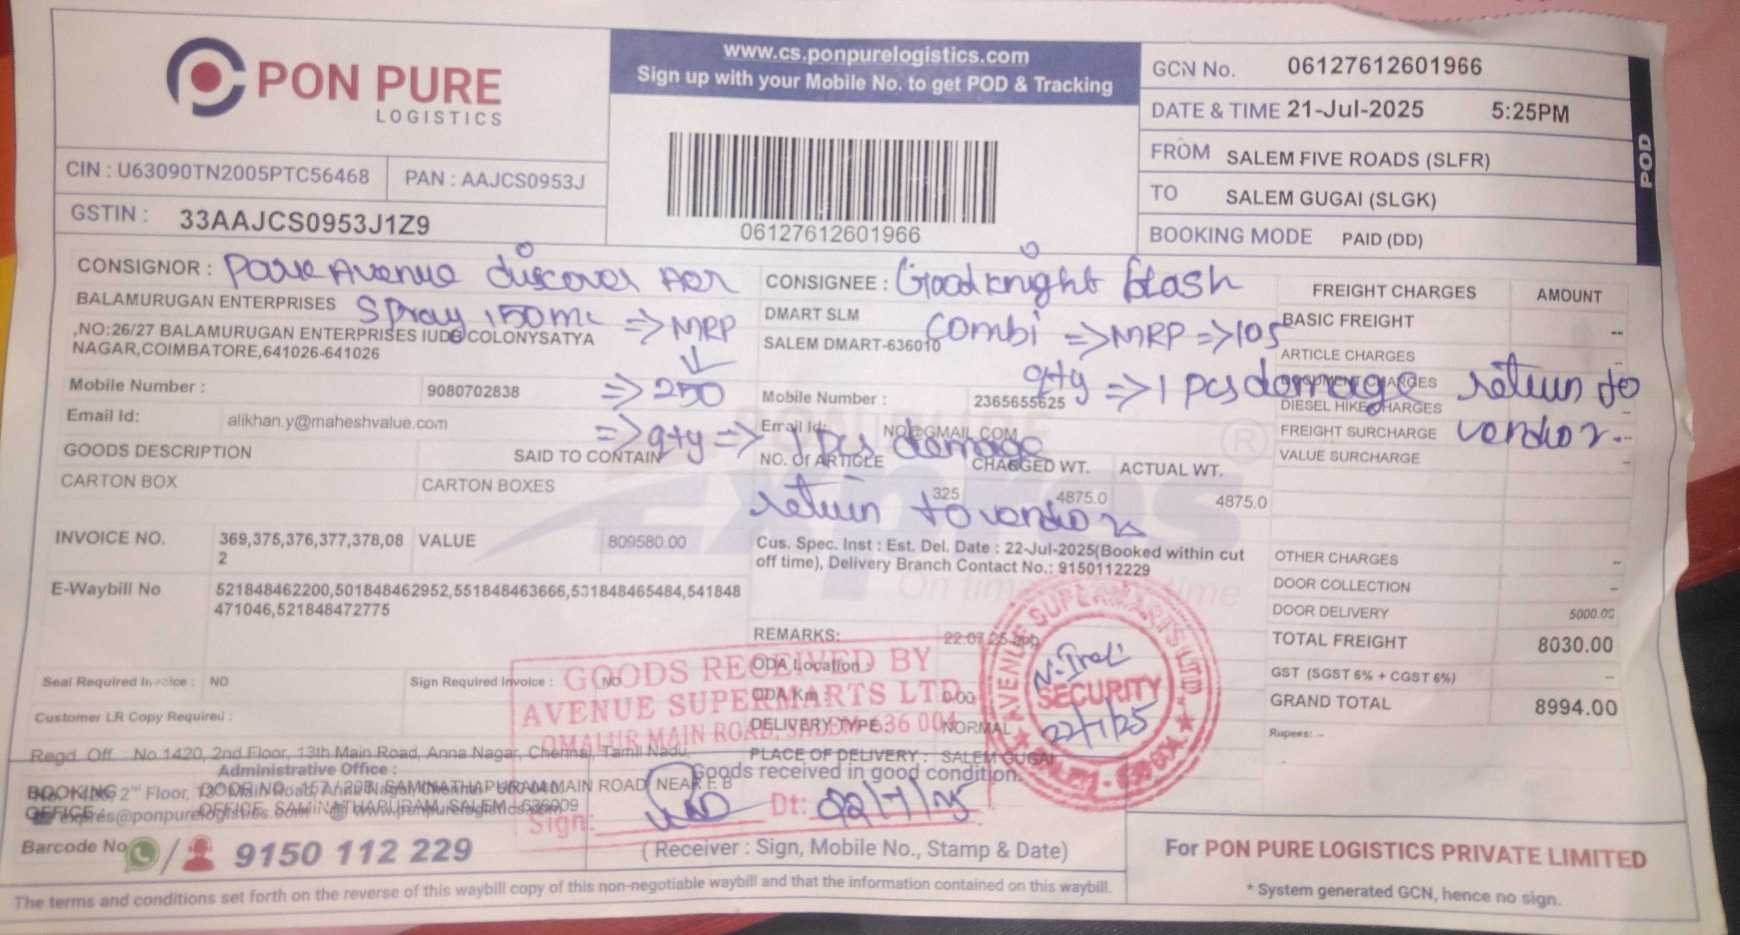 PON PURE
LOGISTICS
www.cs.ponpurelogistics.com
Sign up with your Mobile No. to get POD & Tracking
GCN No. 06127612601966
DATE & TIME 21-Jul-2025 5:25PM
FROM SALEM FIVE ROADS (SLFR)
TO SALEM GUGAI (SLGK)
BOOKING MODE PAID (DD)
POD
CIN : U63090TN2005PTC56468 PAN : AAJCS0953J
GSTIN : 33AAJCS0953J1Z9
06127612601966
CONSIGNOR : Park Avenue discover
BALAMURUGAN ENTERPRISES Spray 150ml => MRP
,NO:26/27 BALAMURUGAN ENTERPRISES IUDG COLONYSATYA
NAGAR,COIMBATORE,641026-641026
Mobile Number : 9080702838 => 250
Email Id: alikhan.y@maheshvalue.com => qty => 1 pcs damage
return to vendor
GOODS DESCRIPTION SAID TO CONTAIN
CARTON BOX CARTON BOXES
CONSIGNEE : Goodknight flash
DMART SLM
SALEM DMART-636010 combi => MRP => 105
qty => 1 pcs damage return to
vendor
Mobile Number : 2365655625
Email Id: NO@GMAIL.COM
NO. Of ARTICLE CHARGED WT. ACTUAL WT.
325 4875.0 4875.0
FREIGHT CHARGES AMOUNT
BASIC FREIGHT --
ARTICLE CHARGES --
DOCUMENT CHARGES
DIESEL HIKE CHARGES --
FREIGHT SURCHARGE --
VALUE SURCHARGE --
OTHER CHARGES --
DOOR COLLECTION --
DOOR DELIVERY 5000.00
TOTAL FREIGHT 8030.00
GST (SGST 6% + CGST 6%) --
GRAND TOTAL 8994.00
Rupees: --
INVOICE NO. 369,375,376,377,378,08
2
VALUE 809580.00
Cus. Spec. Inst : Est. Del. Date : 22-Jul-2025(Booked within cut
off time), Delivery Branch Contact No.: 9150112229
E-Waybill No 521848462200,501848462952,551848463666,531848465484,541848
471046,521848472775
REMARKS:
ODA Location :
ODA Km 0.00
DELIVERY TYPE: NORMAL
PLACE OF DELIVERY : SALEM GUGAI
Seal Required Invoice : NO Sign Required Invoice : NO
Customer LR Copy Required :
GOODS RECEIVED BY
AVENUE SUPERMARTS LTD
OMALUR MAIN ROAD, SALEM 636 004
AVENUE SUPERMARTS LTD
SECURITY
22/7/25
Regd. Off. No.1420, 2nd Floor, 13th Main Road, Anna Nagar, Chennai, Tamil Nadu,
Administrative Office :
BOOKING
OFFICE
Goods received in good condition.
Sign: Dt: 22/7/25
Barcode No / 9150 112 229
( Receiver : Sign, Mobile No., Stamp & Date)
For PON PURE LOGISTICS PRIVATE LIMITED
* System generated GCN, hence no sign.
The terms and conditions set forth on the reverse of this waybill copy of this non-negotiable waybill and that the information contained on this waybill.